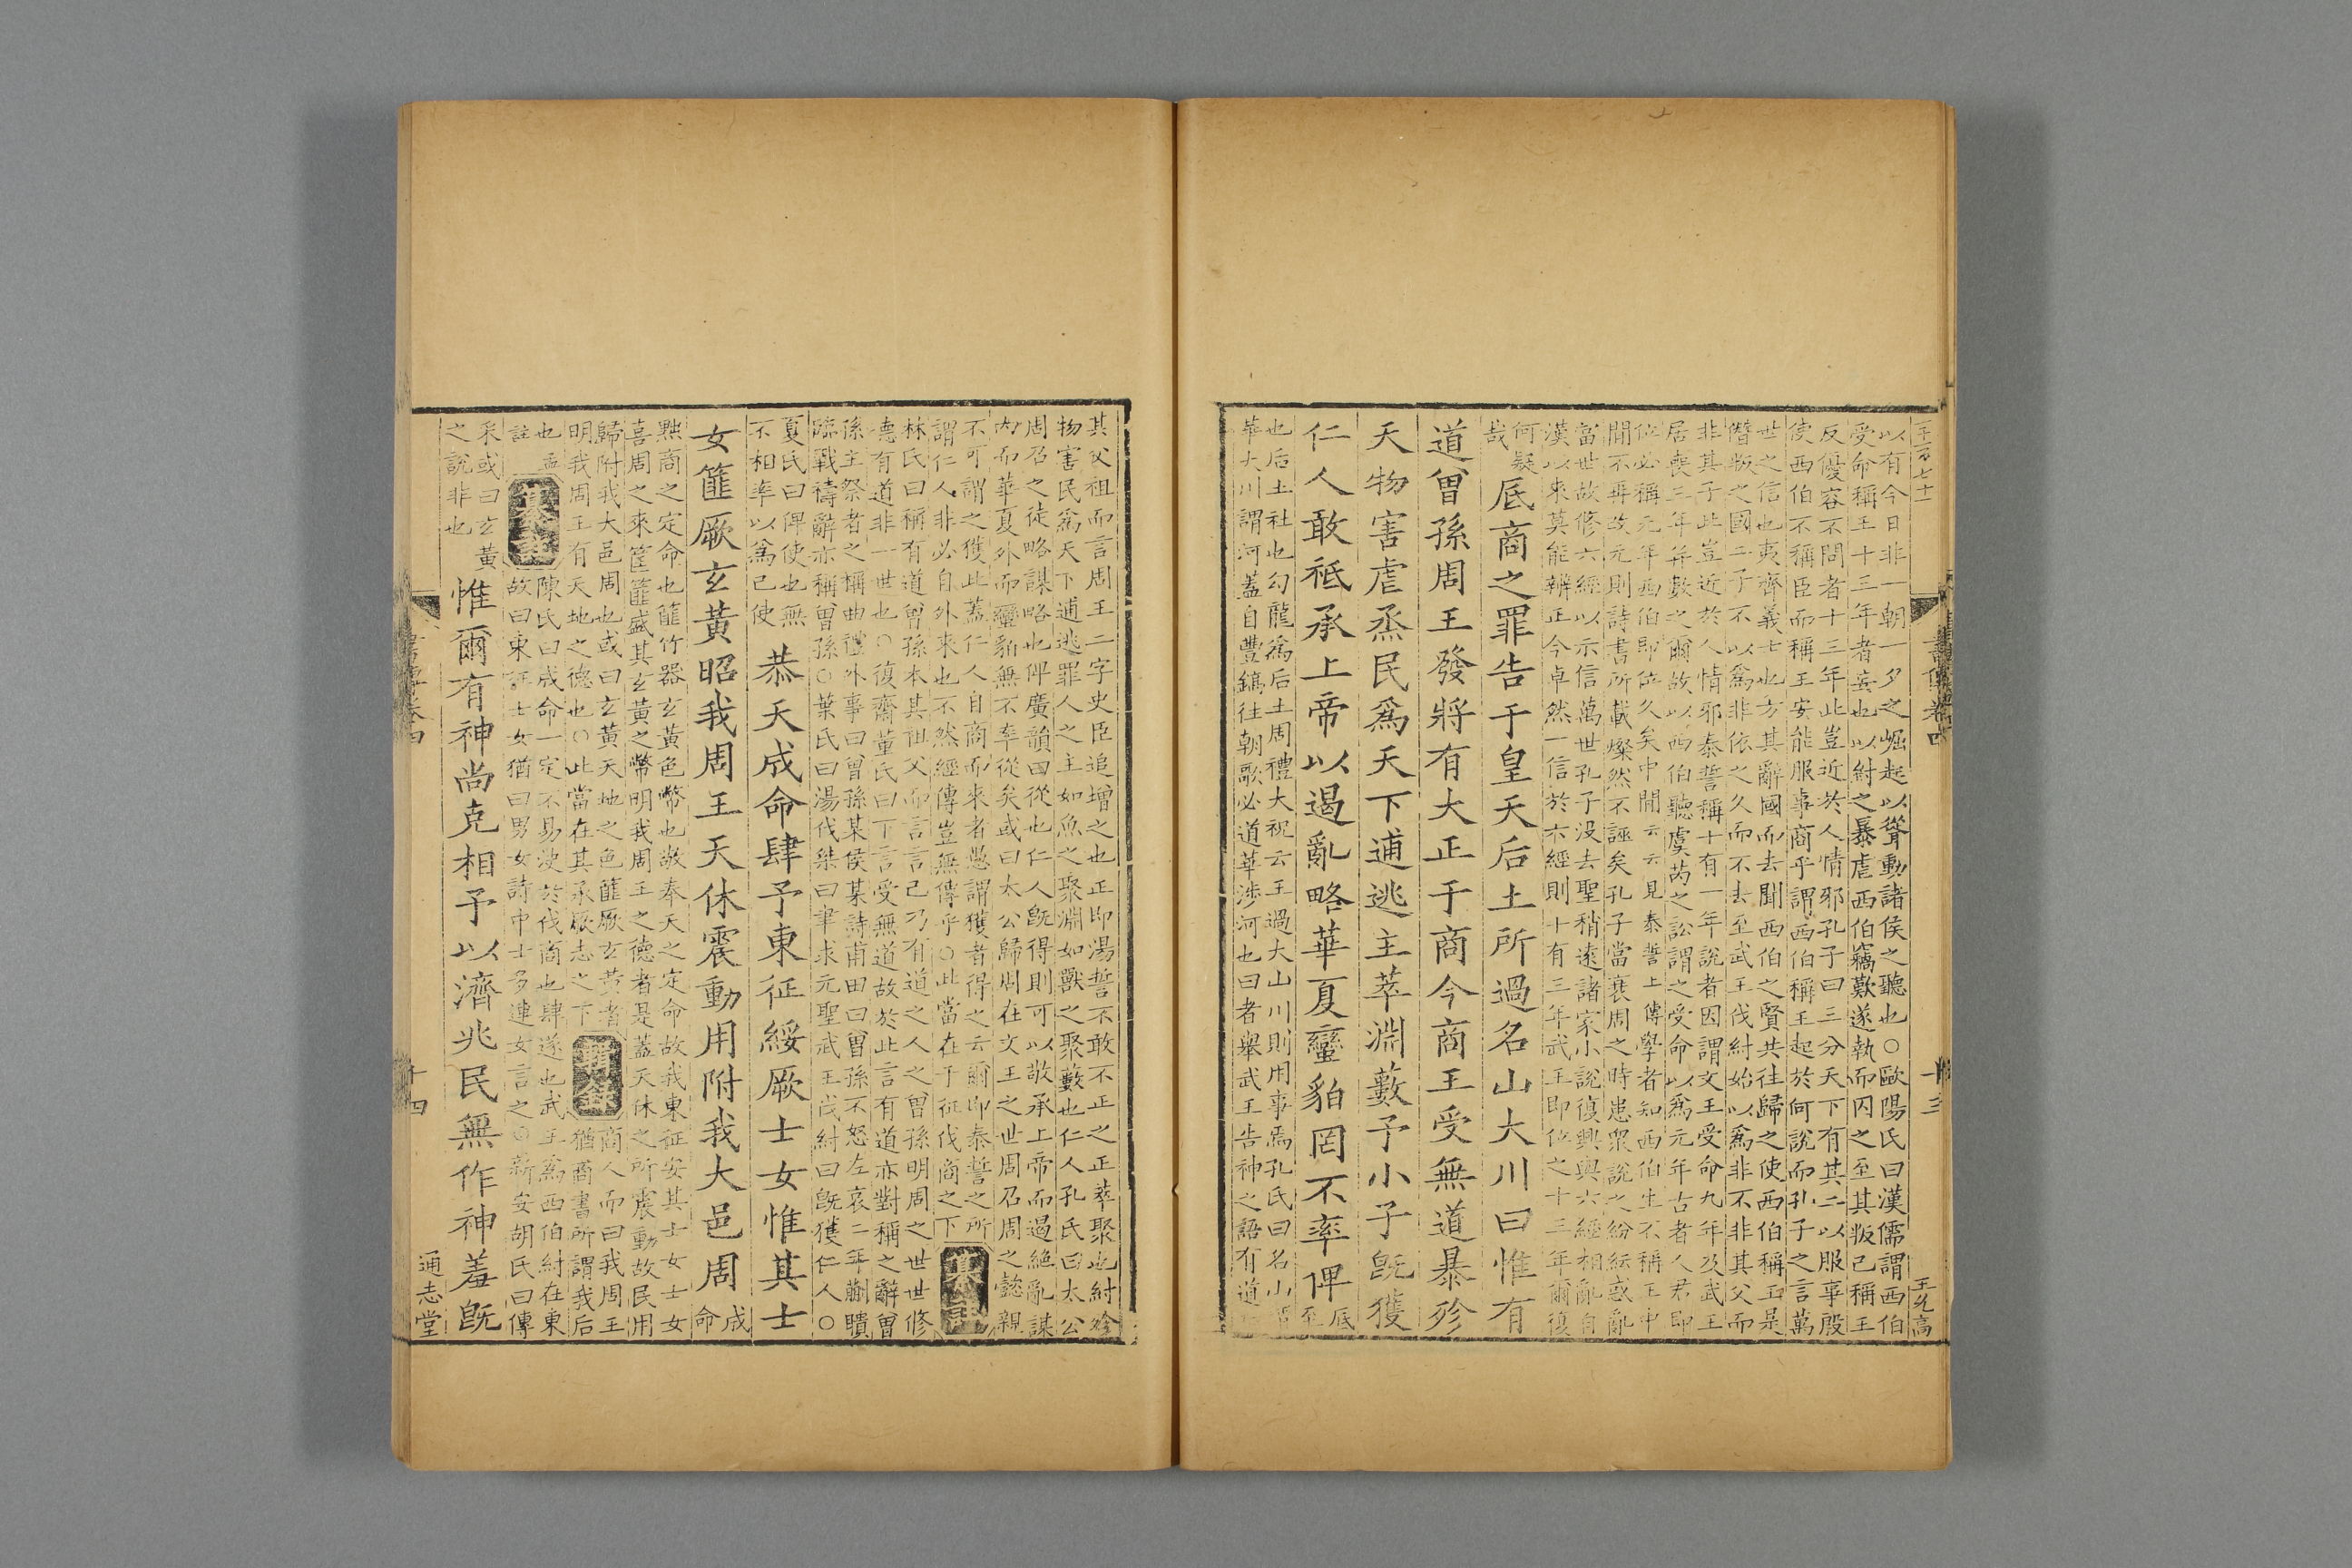 王允高
書傳卷四
十三
以有今日非一朝一夕之崛起以聳動諸侯之聽也○歐陽氏曰漢儒謂西伯
受命稱王十三年者妄也以紂之暴虐西伯竊歎遂執而囚之至其叛己稱王
反優容不問者十三年此豈近於人情邪孔子曰三分天下有其二以服事殷
使西伯不稱臣而稱王安能服事商乎謂西伯稱王起於何說而孔子之言萬
世之信也夷齊義士也方其辭國而去聞西伯之賢共往歸之使西伯稱王是
僭叛之國二子不以爲非依之久而不去至武王伐紂始以爲非不非其父而
非其子此豈近於人情邪泰誓稱十有一年說者因謂文王受命九年及武王
居喪三年并數之爾故以西伯聽虞芮之訟謂之受命以爲元年古者人君即
位必稱元年西伯即位久矣中間云云見泰誓上傳學者知西伯生不稱王中
間不再改元則詩書所載燦然不誣矣孔子當衰周之時患衆說之紛紜惑亂
當世故修六經以示信萬世孔子没去聖稍遠諸家小說復興與六經相亂自
漢以來莫能辨正今卓然一信於六經則十有三年武王即位之十三年爾復
何疑
哉
底商之罪告于皇天后土所過名山大川曰惟有
道曾孫周王發將有大正于商今商王受無道暴殄
天物害虐烝民爲天下逋逃主萃淵藪予小子旣獲
仁人敢祗承上帝以遏亂略華夏蠻貊罔不率俾
底
至
也后土社也勾龍爲后土周禮大祝云王過大山川則用事焉孔氏曰名山
華大川謂河蓋自豐鎬往朝歌必道華涉河也曰者舉武王告神之語有道
其父祖而言周王二字史臣追增之也正即湯誓不敢不正之正萃聚也紂殄
物害民爲天下逋逃罪人之主如魚之聚淵如獸之聚藪也仁人孔氏曰太公
周召之徒略謀略也俾廣韻曰從也仁人旣得則可以敬承上帝而遏絶亂謀
内而華夏外而蠻貊無不率從矣或曰太公歸周在文王之世周召周之懿親
不可謂之獲此蓋仁人自商而來者愚謂獲者得之云爾即泰誓之所
謂仁人非必自外來也不然經傳豈無傳乎○此當在于征伐商之下
纂註
林氏曰稱有道曾孫本其祖父而言言己乃有道之人之曾孫明周之世世修
德有道非一世也○復齋董氏曰下言受無道故於此言有道亦對稱之辭曾
孫主祭者之稱曲禮外事曰曾孫某侯某詩甫田曰曾孫不怒左哀二年蒯聵
臨戰禱辭亦稱曾孫○葉氏曰湯伐桀曰聿求元聖武王伐紂曰旣獲仁人○
夏氏曰俾使也無
不相率以爲已使
恭天成命肆予東征綏厥士女惟其士
女篚厥玄黃昭我周王天休震動用附我大邑周
成
命
黜商之定命也篚竹器玄黃色幣也敬奉天之定命故我東征安其士女士女
喜周之來筐篚盛其玄黃之幣明我周王之德者是蓋天休之所震動故民用
歸附我大邑周也或曰玄黃天地之色篚厥玄黃者
明我周王有天地之德也○此當在其承厥志之下
輯錄
商人而曰我周王
猶商書所謂我后
也孟
註
纂註
陳氏曰成命一定不易決於伐商也肆遂也武王爲西伯紂在東
故曰東征士女猶曰男女詩中士多連女言之○新安胡氏曰傳
采或曰玄黃
之說非也
惟爾有神尚克相予以濟兆民無作神羞旣
十四
通志堂